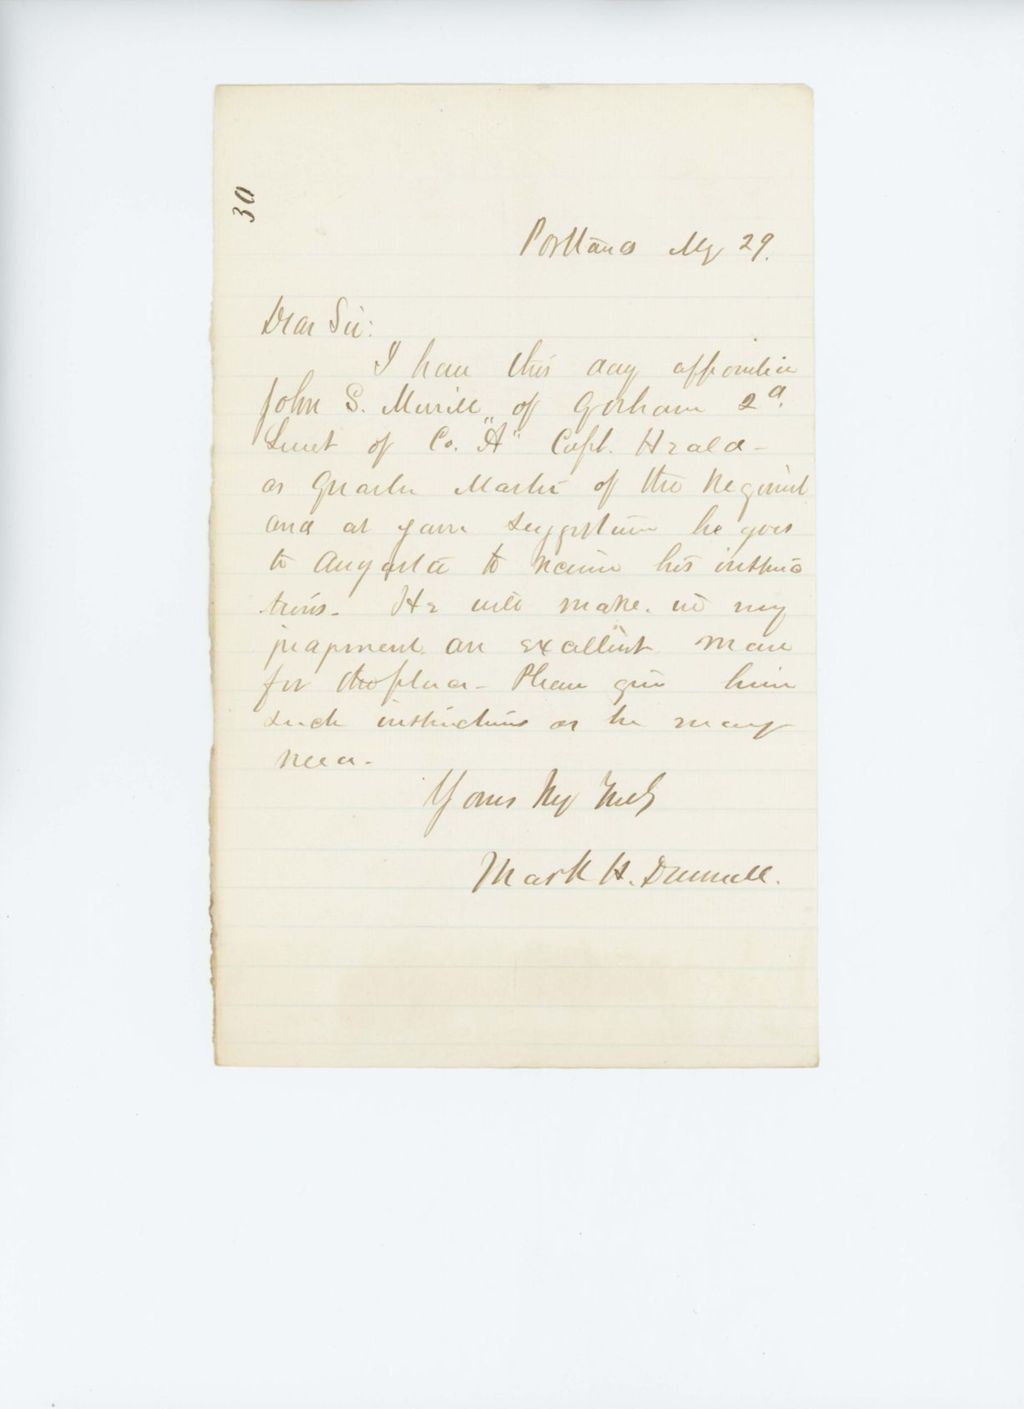 30
Portland My 29.
Dear Sir:
I have this day appointed
John S. Merrill of Gorham 2d.
Lieut of Co. "A" Capt. Heald -
as Quarter Master of the Regiment
and at your suggestion he goes
to Augusta to receive his instruc
tions - He will make in my
judgment an excellent man
for the place - Please give him
such instructions as he may
need -
Yours
Mark H. Dunnell.